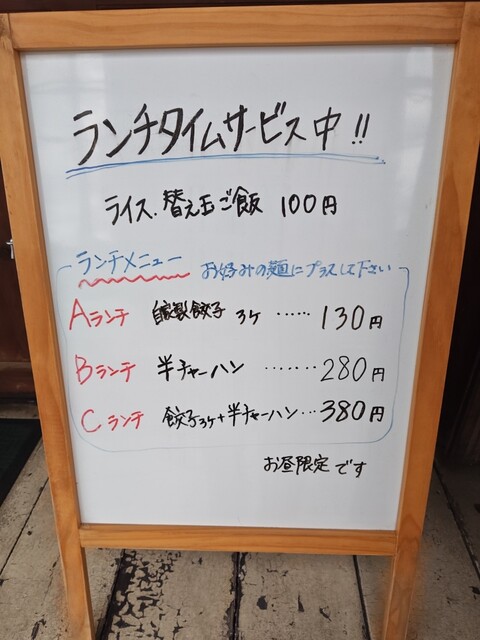 ランチタイムサービス中!!
ライス、替え玉ご飯 100円
ランチメニュー お好みの麺にプラスして下さい
Aランチ 自家製餃子 3ケ ‥‥‥ 130円
Bランチ 半チャーハン ‥‥‥ 280円
Cランチ 餃子3ケ+半チャーハン‥・380円
お昼限定です